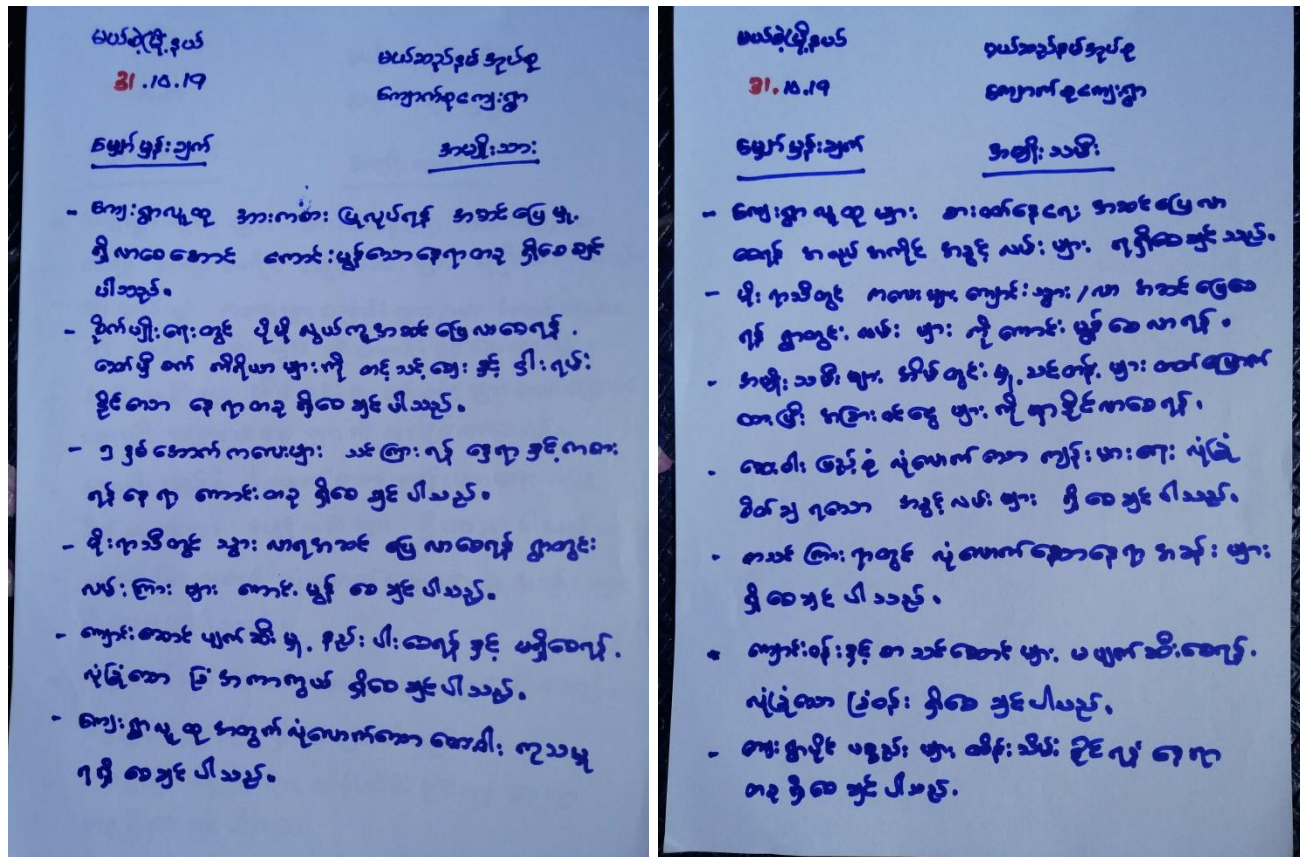 မယ်စဲ့မြို့နယ်
31.10.19
မယ်ဆည်နမ်အုပ်စု
ကျောက်စုကျေးရွာ
မျှော်မှန်းချက်
အမျိုးသား
- ကျေးရွာလူထု အားကစား ပြုလုပ်ရန် အဆင်ပြေမှု
ရှိလာစေအောင် ကောင်းမွန်သောနေရာတခု ရှိစေချင်
ပါသည်။
- စိုက်ပျိုးရေးတွင် ပိုမိုလွယ်ကူအဆင်ပြေလာစေရန်
ခေတ်မှီစက် ကိရိယာများကို တင့်သင့်ဈေးနှင့် ငှါးရမ်း
နိုင်သော နေရာတခု ရှိစေချင်ပါသည်။
- ၅ နှစ်အောက်ကလေးများ သင်ကြားရန် နေရာနှင့်ကစား
ရန်နေရာ ကောင်းတခု ရှိစေချင်ပါသည်။
- မိုးရာသီတွင် သွားလာရအဆင်ပြေလာစေရန် ရွာတွင်း
လမ်းကြားများ ကောင်းမွန်စေချင်ပါသည်။
- ကျောင်းဆောင်ပျက်ဆီးမှု နည်းပါးစေရန်နှင့် မရှိစေရန်
လုံခြုံသော ခြံအကာကွယ် ရှိစေချင်ပါသည်။
- ကျေးရွာလူထုအတွက်လုံလောက်သောဆေးဝါး ကုသမှု
ရရှိစေချင်ပါသည်။
မယ်စဲ့မြို့နယ်
31.10.19
မယ်ဆည်နမ်အုပ်စု
ကျောက်စုကျေးရွာ
မျှော်မှန်းချက်
အမျိုးသမီး
- ကျေးရွာလူထုများ စားဝတ်နေရေး အဆင်ပြေလာ
စေရန် အလုပ်အကိုင် အခွင့်လမ်းများ ရရှိစေချင်သည်။
- မိုးရာသီတွင် ကလေးများကျောင်းသွား/လာ အဆင်ပြေစေ
ရန် ရွာတွင်းလမ်းများကို ကောင်းမွန်စေလာရန်။
- အမျိုးသမီးများ အိမ်တွင်းမှု သင်တန်းများတတ်မြောက်
ထားပြီး အခြားဝင်ငွေများကိုရှာနိုင်လာစေရန်။
- ဆေးဝါးစုံလုံလောက်သော ကျန်းမာရေး လုံခြုံ
စိတ်ချရသော အခွင့်လမ်းများ ရှိစေချင်ပါသည်။
- စာသင်ကြားရာတွင် လုံလောက်သောနေရာအခန်းများ
ရှိစေချင်ပါသည်။
- ကျောင်းဝန်းနှင့်စာသင်ဆောင်များ မပျက်ဆီးစေရန်
လုံခြုံသော ခြံဝန်း ရှိစေချင်ပါသည်။
- ကျေးရွာပိုင်ပစ္စည်းများ ထိန်းသိမ်းနိုင်ရန် နေရာ
တခုရှိစေချင်ပါသည်။